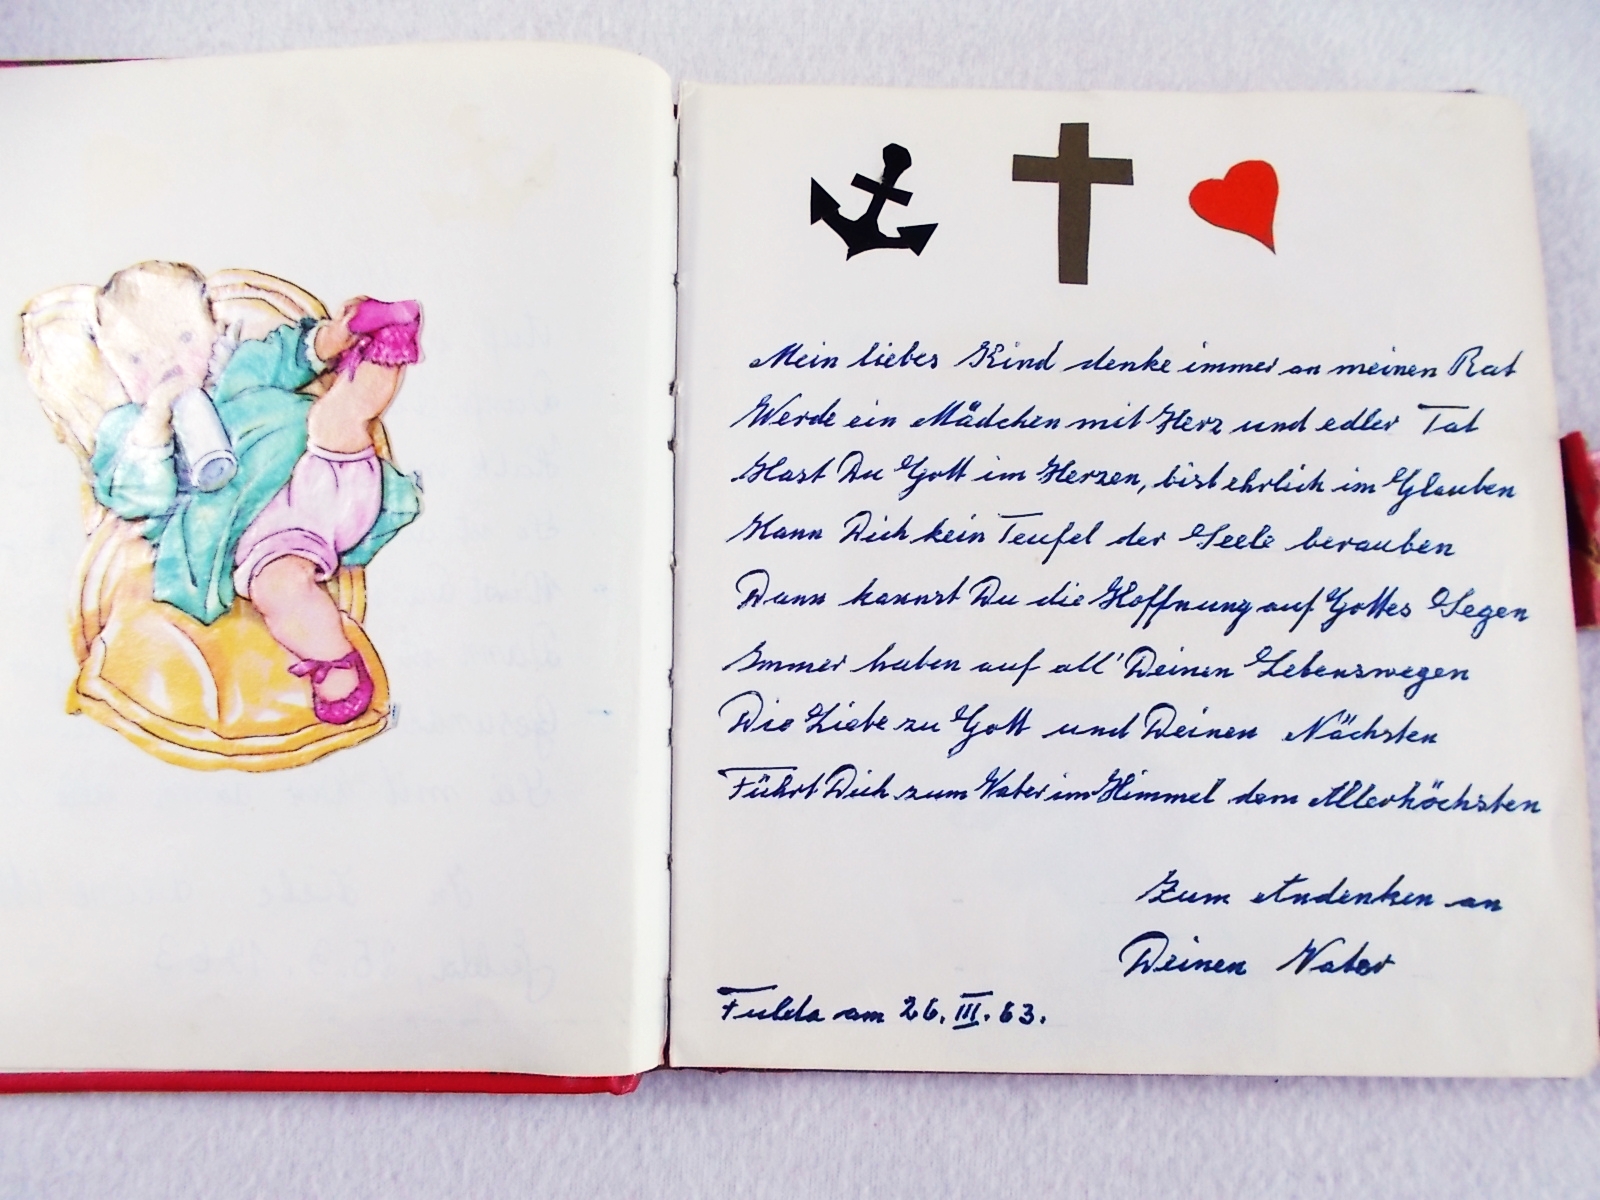 Mein liebes Kind denke immer an meinen Rat
Werde ein Mädchen mit Herz und edler Tat
Hast Du Gott im Herzen, bist ehrlich im Glauben
Kann Dich kein Teufel der Seele berauben
Dann kannst Du die Hoffnung auf Gottes Segen
Immer haben auf all' Deinen Lebenswegen
Die Liebe zu Gott und Deinen Nächsten
Führt Dich zum Vater im Himmel dem Allerhöchsten
Zum Andenken an
Deinen Vater
Fulda am 26. III. 63.